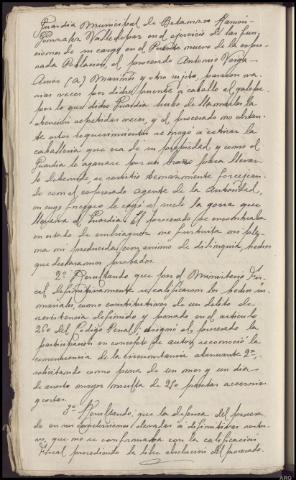 Guardia Municipal de Betanzos Ramón
Valledepaz en el ejercicio de las fun-
ciones de su cargo en el Puente nuevo de la expre-
sada Poblacion, el procesado Antonio Varela
(a) Mantiñs y otro sujeto pasaron va-
rias veces por dicho puente a caballo al galope
por lo que dicho Guardia hubo de llamarles la
atención repetidas veces, y el procesado no obstan-
te estos requerimientos se negó a retirar la
caballeria que era de su propiedad y como el
Guardia le agarrase por un brazo para llevar-
le detenido, se resistió tenazmente forcejean-
do con el expresado agente de la Autoridad,
en cuyo forcejeo le cayó al suelo la gorra que
llevaba el Guardia. El procesado se encontraba
en estado de embriaguez no fortuita no ple-
na ni producida con animo de delinquir hechos
que declaramos probados.
2º Resultando que por el Ministerio Fis-
cal definitivamente se calificaron los hechos su-
mariales como constitutivos de un delito de
resistencia definido y penado en el articulo
260 del Código Penal, designó al procesado la
participación en concepto de autor, reconoció la
concurrencia de la circunstancia atenuante 2ª,
solicitando como pena de un mes y un dia
de arresto mayor, multa de 250 pesetas accesorias
y costas.
3º Resultando: que la defensa del procesa-
do en sus conclusiones elevadas a definitivas sostu-
vo, que no se conformaba con la calificación
Fiscal procediendo la libre absolución del procesado.